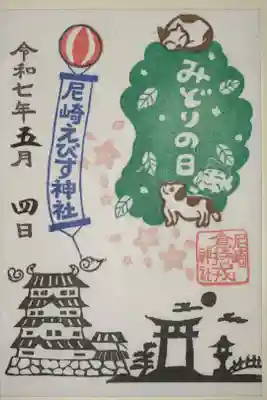 令和七年五月 四日
尼崎えびす神社
みどりの日